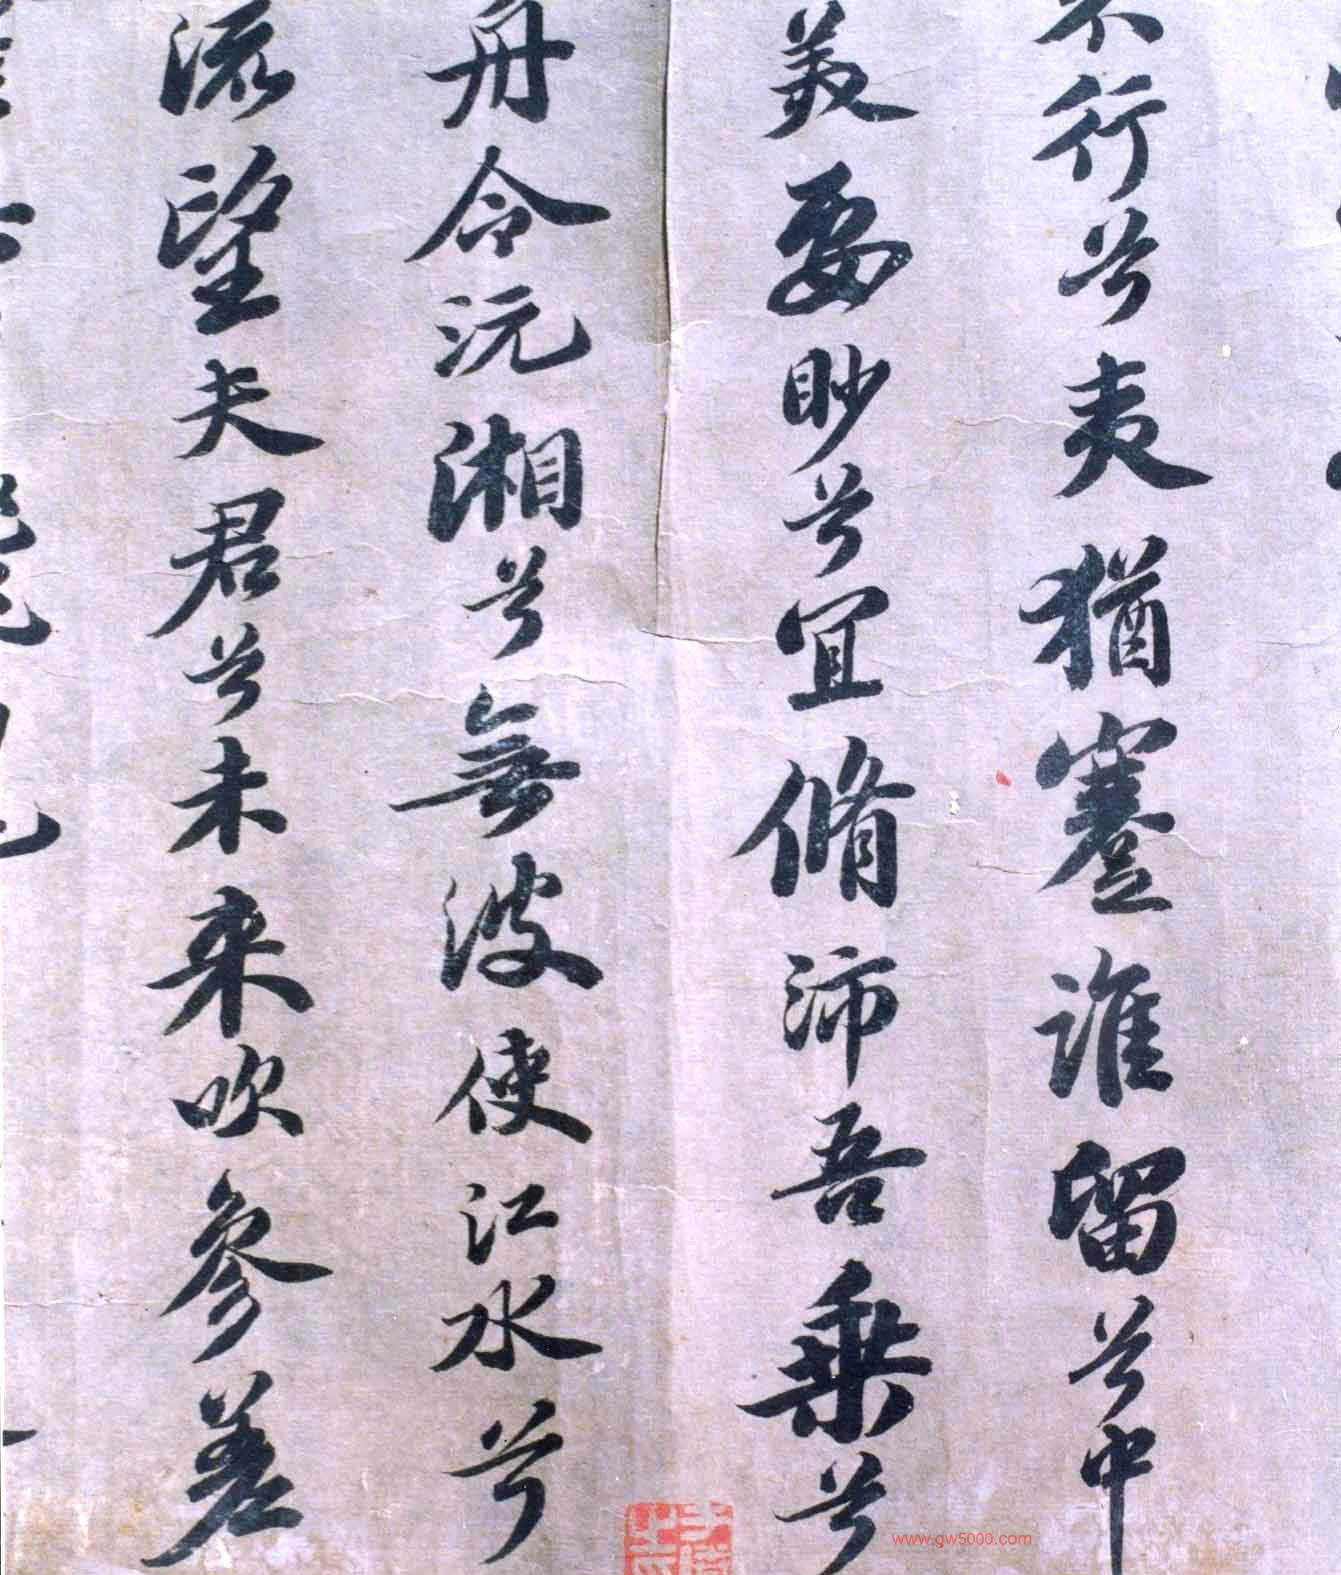 不行兮夷猶蹇誰留兮中
美要眇兮宜脩沛吾乘兮
舟令沅湘兮無波使江水兮
流望夫君兮未来吹參差
www.gw5000.com